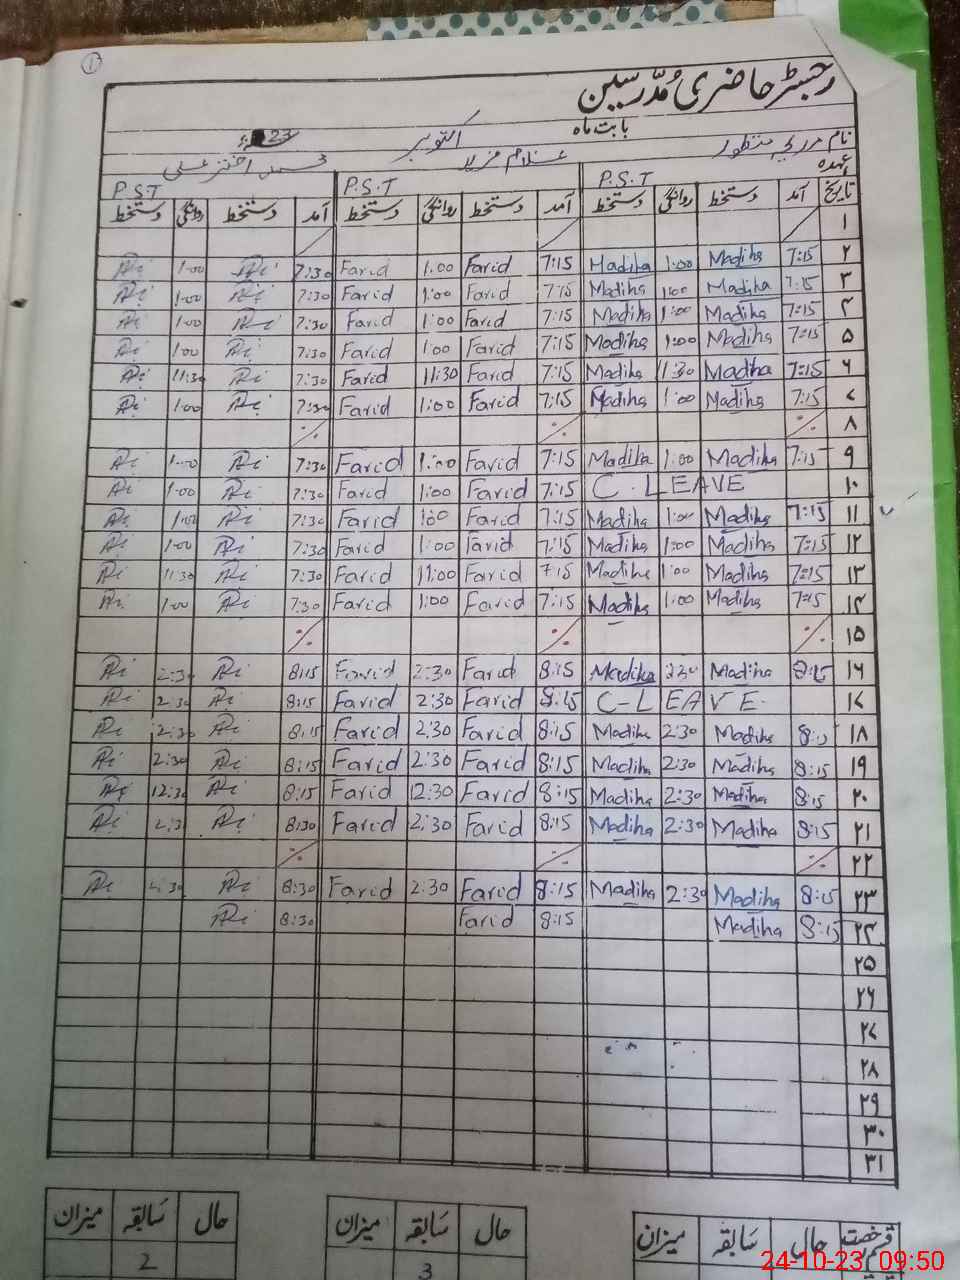 1
رجسٹر حاضری مُدّرسین
بابت ماہ اکتوبر 23ء
نام مدیحہ منظور غلام فرید محمد اختر علی
عہدہ P.S.T P.S.T P.S.T
تاریخ آمد دستخط روانگی دستخط آمد دستخط روانگی دستخط آمد دستخط روانگی دستخط
۱
۲ 7:15 Madiha 1:00 Madiha 7:15 Farid 1:00 Farid 7:30 1:00
۳ 7:15 Madiha 1:00 Madiha 7:15 Farid 1:00 Farid 7:30 1:00
۴ 7:15 Madiha 1:00 Madiha 7:15 Farid 1:00 Farid 7:30 1:00
۵ 7:15 Madiha 1:00 Madiha 7:15 Farid 1:00 Farid 7:30 1:00
۶ 7:15 Madiha 11:30 Madiha 7:15 Farid 11:30 Farid 7:30 11:30
۷ 7:15 Madiha 1:00 Madiha 7:15 Farid 1:00 Farid 7:30 1:00
۸
۹ 7:15 Madiha 1:00 Madiha 7:15 Farid 1:00 Farid 7:30 1:00
۱۰ C-LEAVE 7:15 Farid 1:00 Farid 7:30 1:00
۱۱ 7:15 Madiha 1:00 Madiha 7:15 Farid 1:00 Farid 7:30 1:00
۱۲ 7:15 Madiha 1:00 Madiha 7:15 Farid 1:00 Farid 7:30 1:00
۱۳ 7:15 Madiha 1:00 Madiha 7:15 Farid 11:00 Farid 7:30 11:30
۱۴ 7:15 Madiha 1:00 Madiha 7:15 Farid 1:00 Farid 7:30 1:00
۱۵
۱۶ 8:15 Madiha 2:30 Madika 8:15 Farid 2:30 Farid 8:15 2:30
۱۷ C-LEAVE. 8:15 Farid 2:30 Farid 8:15 2:30
۱۸ 8:15 Madiha 2:30 Madiha 8:15 Farid 2:30 Farid 8:15 2:30
۱۹ 8:15 Madiha 2:30 Madiha 8:15 Farid 2:30 Farid 8:15 2:30
۲۰ 8:15 Madiha 2:30 Madiha 8:15 Farid 12:30 Farid 8:15 12:30
۲۱ 8:15 Madiha 2:30 Madiha 8:15 Farid 2:30 Farid 8:30 2:30
۲۲
۲۳ 8:15 Madiha 2:30 Madiha 8:15 Farid 2:30 Farid 8:30 2:30
۲۴ 8:15 Madiha 8:15 Farid 8:30
۲۵
۲۶
۲۷
۲۸
۲۹
۳۰
۳۱
قسم رخصت حال سَابقہ میزان حال سَابقہ میزان حال سَابقہ میزان
3 2
24-10-23 09:50